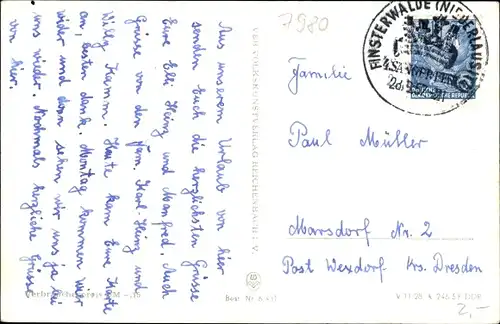 7980
FINSTERWALDE (NIEDERLAUSITZ)
4. SÄNGERFEST
Aus unserem Urlaub von hier
senden Euch die herzlichsten Grüsse
Eure Elli Heinz und Manfred. Auch
Grüsse von den Fam. Karl-Heinz und
Willy Kamm. Heute kam Eure Karte
an, besten dank. Montag kommen wir
wieder und dann sehen wir uns ja bei
uns wieder. Nochmals herzliche Grüsse
von hier.
VEB VOLKSKUNSTVERLAG REICHENBACH i. V.
Familie
Paul Müller
Marsdorf Nr. 2
Post Wexdorf Krs. Dresden
Verbraucherpreis DM -,15
Best. Nr.
V 11/28 A 246/59 DDR
2,-